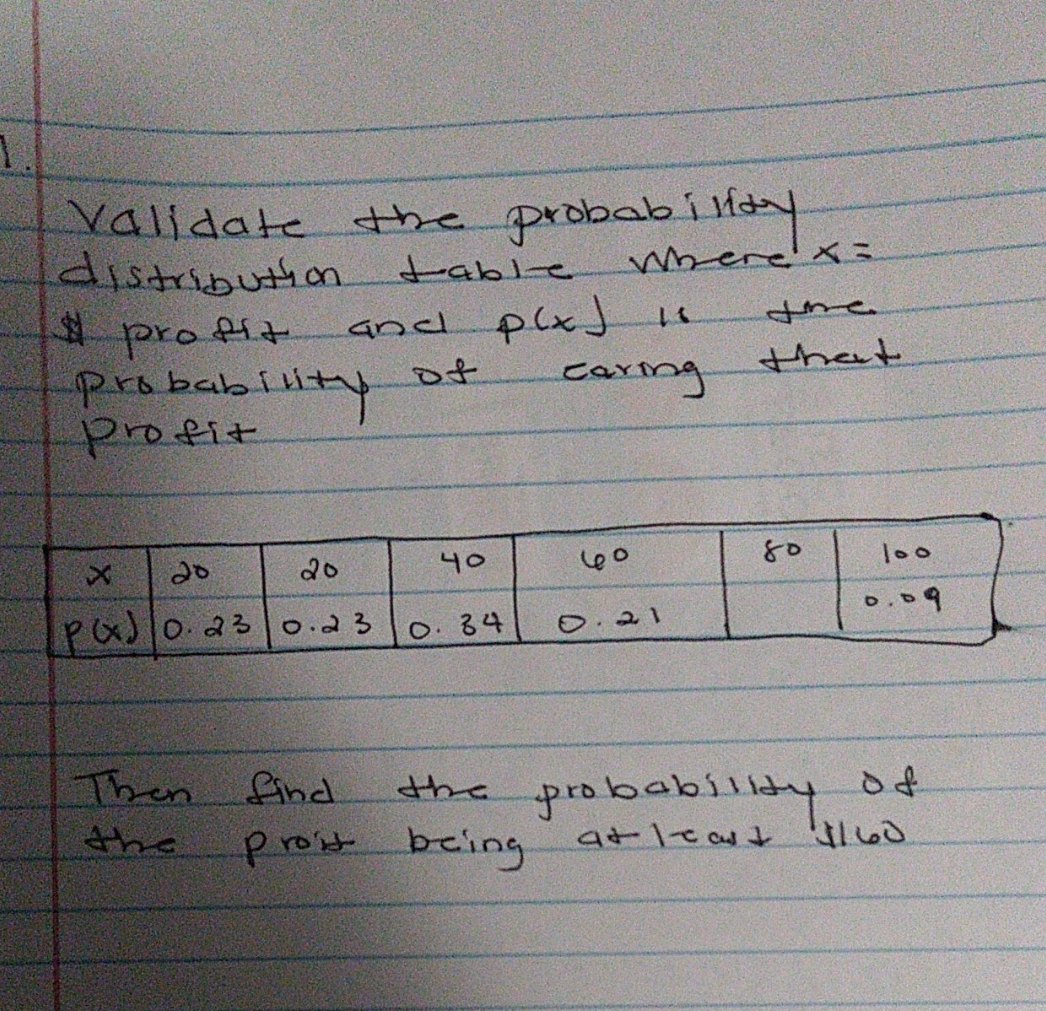 1.
Validate the probability
distribution table where x =
$ profit and p(x) is the
probability of earing that
profit
x 20 20 40 60 80 100
p(x) 0.23 0.23 0.34 0.21 0.09
Then find the probability of
the proit being at least $60